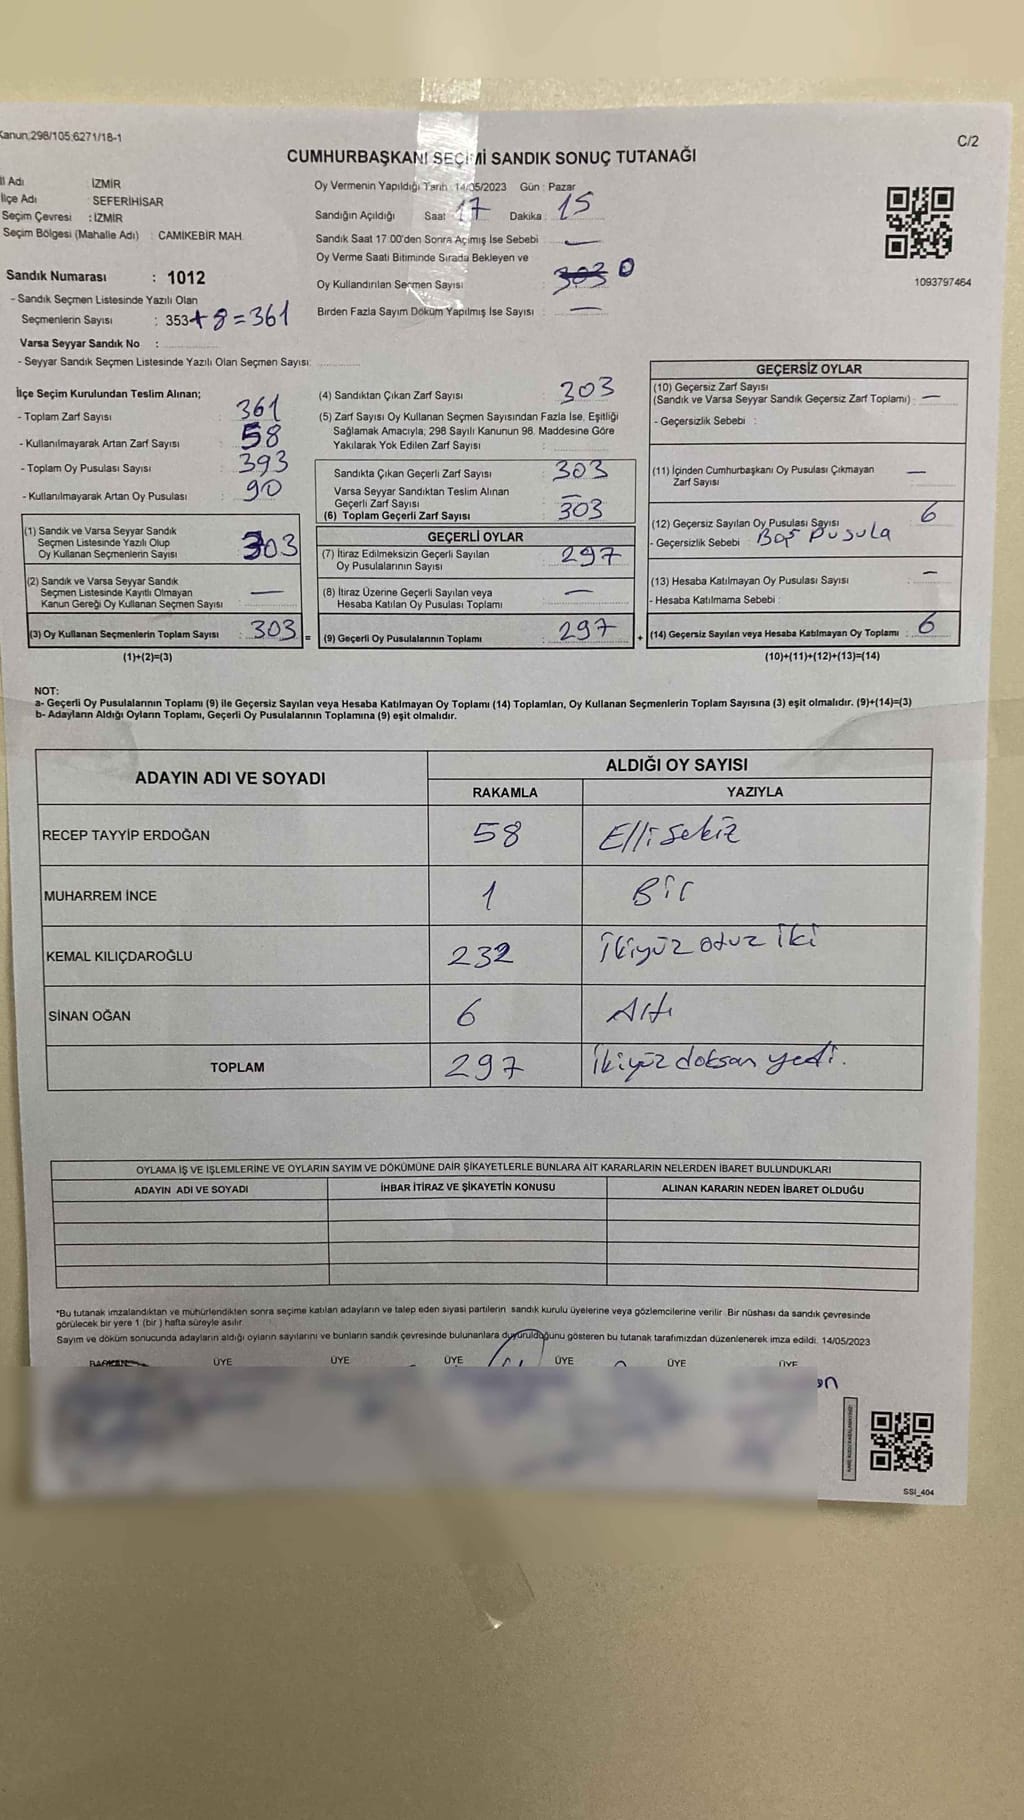 Kanun:298/105:6271/18-1
C/2
CUMHURBAŞKANI SEÇİMİ SANDIK SONUÇ TUTANAĞI
İl Adı : İZMİR
İlçe Adı : SEFERİHİSAR
Seçim Çevresi : İZMİR
Seçim Bölgesi (Mahalle Adı) : CAMİKEBİR MAH.
Sandık Numarası : 1012
- Sandık Seçmen Listesinde Yazılı Olan
Seçmenlerin Sayısı : 353+8=361
Varsa Seyyar Sandık No :
- Seyyar Sandık Seçmen Listesinde Yazılı Olan Seçmen Sayısı:
Oy Vermenin Yapıldığı Tarih : 14/05/2023 Gün : Pazar
Sandığın Açıldığı Saat 17 Dakika : 15
Sandık Saat 17:00'den Sonra Açımış İse Sebebi : —
Oy Verme Saati Bitiminde Sırada Bekleyen ve
Oy Kullandırılan Seçmen Sayısı : 303 0
Birden Fazla Sayım Döküm Yapılmış İse Sayısı : —
1093797464
İlçe Seçim Kurulundan Teslim Alınan;
- Toplam Zarf Sayısı : 361
- Kullanılmayarak Artan Zarf Sayısı : 58
- Toplam Oy Pusulası Sayısı : 393
- Kullanılmayarak Artan Oy Pusulası : 90
(1) Sandık ve Varsa Seyyar Sandık
Seçmen Listesinde Yazılı Olup
Oy Kullanan Seçmenlerin Sayısı : 303
(2) Sandık ve Varsa Seyyar Sandık
Seçmen Listesinde Kayıtlı Olmayan
Kanun Gereği Oy Kullanan Seçmen Sayısı : —
(3) Oy Kullanan Seçmenlerin Toplam Sayısı : 303 =
(1)+(2)=(3)
(4) Sandıktan Çıkan Zarf Sayısı : 303
(5) Zarf Sayısı Oy Kullanan Seçmen Sayısından Fazla İse, Eşitliği
Sağlamak Amacıyla; 298 Sayılı Kanunun 98. Maddesine Göre
Yakılarak Yok Edilen Zarf Sayısı :
Sandıkta Çıkan Geçerli Zarf Sayısı : 303
Varsa Seyyar Sandıktan Teslim Alınan
Geçerli Zarf Sayısı : —
(6) Toplam Geçerli Zarf Sayısı : 303
GEÇERLİ OYLAR
(7) İtiraz Edilmeksizin Geçerli Sayılan
Oy Pusulalarının Sayısı : 297
(8) İtiraz Üzerine Geçerli Sayılan veya
Hesaba Katılan Oy Pusulası Toplamı : —
(9) Geçerli Oy Pusulalarının Toplamı : 297 +
GEÇERSİZ OYLAR
(10) Geçersiz Zarf Sayısı
(Sandık ve Varsa Seyyar Sandık Geçersiz Zarf Toplamı) : —
- Geçersizlik Sebebi :
(11) İçinden Cumhurbaşkanı Oy Pusulası Çıkmayan
Zarf Sayısı : —
(12) Geçersiz Sayılan Oy Pusulası Sayısı : 6
- Geçersizlik Sebebi : Boş Pusula
(13) Hesaba Katılmayan Oy Pusulası Sayısı : —
- Hesaba Katılmama Sebebi :
(14) Geçersiz Sayılan veya Hesaba Katılmayan Oy Toplamı : 6
(10)+(11)+(12)+(13)=(14)
NOT:
a- Geçerli Oy Pusulalarının Toplamı (9) ile Geçersiz Sayılan veya Hesaba Katılmayan Oy Toplamı (14) Toplamları, Oy Kullanan Seçmenlerin Toplam Sayısına (3) eşit olmalıdır. (9)+(14)=(3)
b- Adayların Aldığı Oyların Toplamı, Geçerli Oy Pusulalarının Toplamına (9) eşit olmalıdır.
ADAYIN ADI VE SOYADI ALDIĞI OY SAYISI
RAKAMLA YAZIYLA
RECEP TAYYİP ERDOĞAN 58 Elli sekiz
MUHARREM İNCE 1 Bir
KEMAL KILIÇDAROĞLU 232 İkiyüz otuz iki
SİNAN OĞAN 6 Altı
TOPLAM 297 İkiyüz doksan yedi.
OYLAMA İŞ VE İŞLEMLERİNE VE OYLARIN SAYIM VE DÖKÜMÜNE DAİR ŞİKAYETLERLE BUNLARA AİT KARARLARIN NELERDEN İBARET BULUNDUKLARI
ADAYIN ADI VE SOYADI İHBAR İTİRAZ VE ŞİKAYETİN KONUSU ALINAN KARARIN NEDEN İBARET OLDUĞU
*Bu tutanak imzalandıktan ve mühürlendikten sonra seçime katılan adayların ve talep eden siyasi partilerin sandık kurulu üyelerine veya gözlemcilerine verilir. Bir nüshası da sandık çevresinde
görülecek bir yere 1 (bir) hafta süreyle asılır.
Sayım ve döküm sonucunda adayların aldığı oyların sayılarını ve bunların sandık çevresinde bulunanlara duyurulduğunu gösteren bu tutanak tarafımızdan düzenlenerek imza edildi. 14/05/2023
BAŞKAN ÜYE ÜYE ÜYE ÜYE ÜYE ÜYE
SSI_404